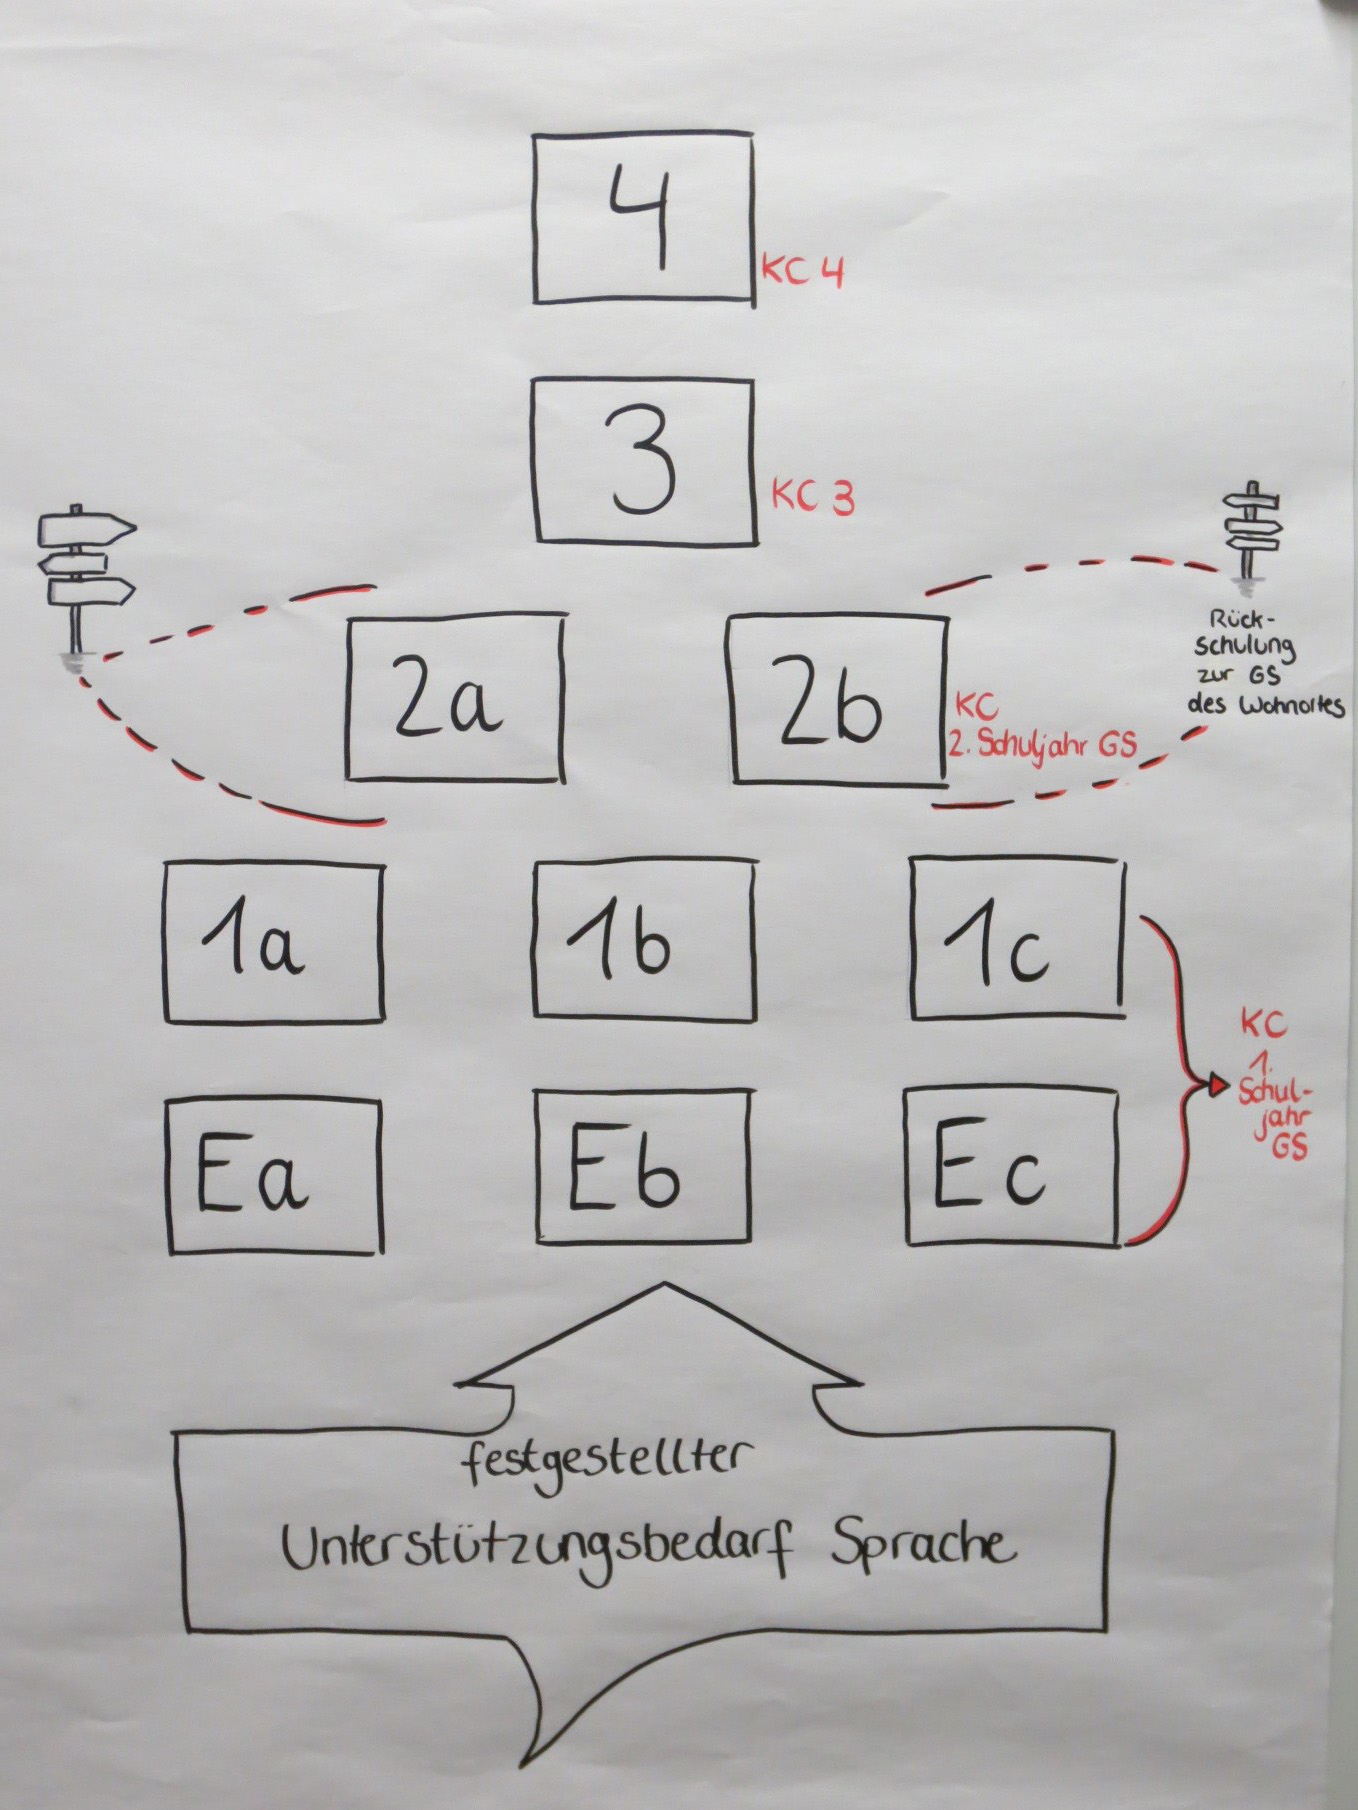 4
KC 4
3
KC 3
Rück-
schulung
zur GS
des Wohnortes
2a
2b
KC
2. Schuljahr GS
1a
1b
1c
KC
1.
Schul-
jahr
GS
Ea
Eb
Ec
festgestellter
Unterstützungsbedarf Sprache